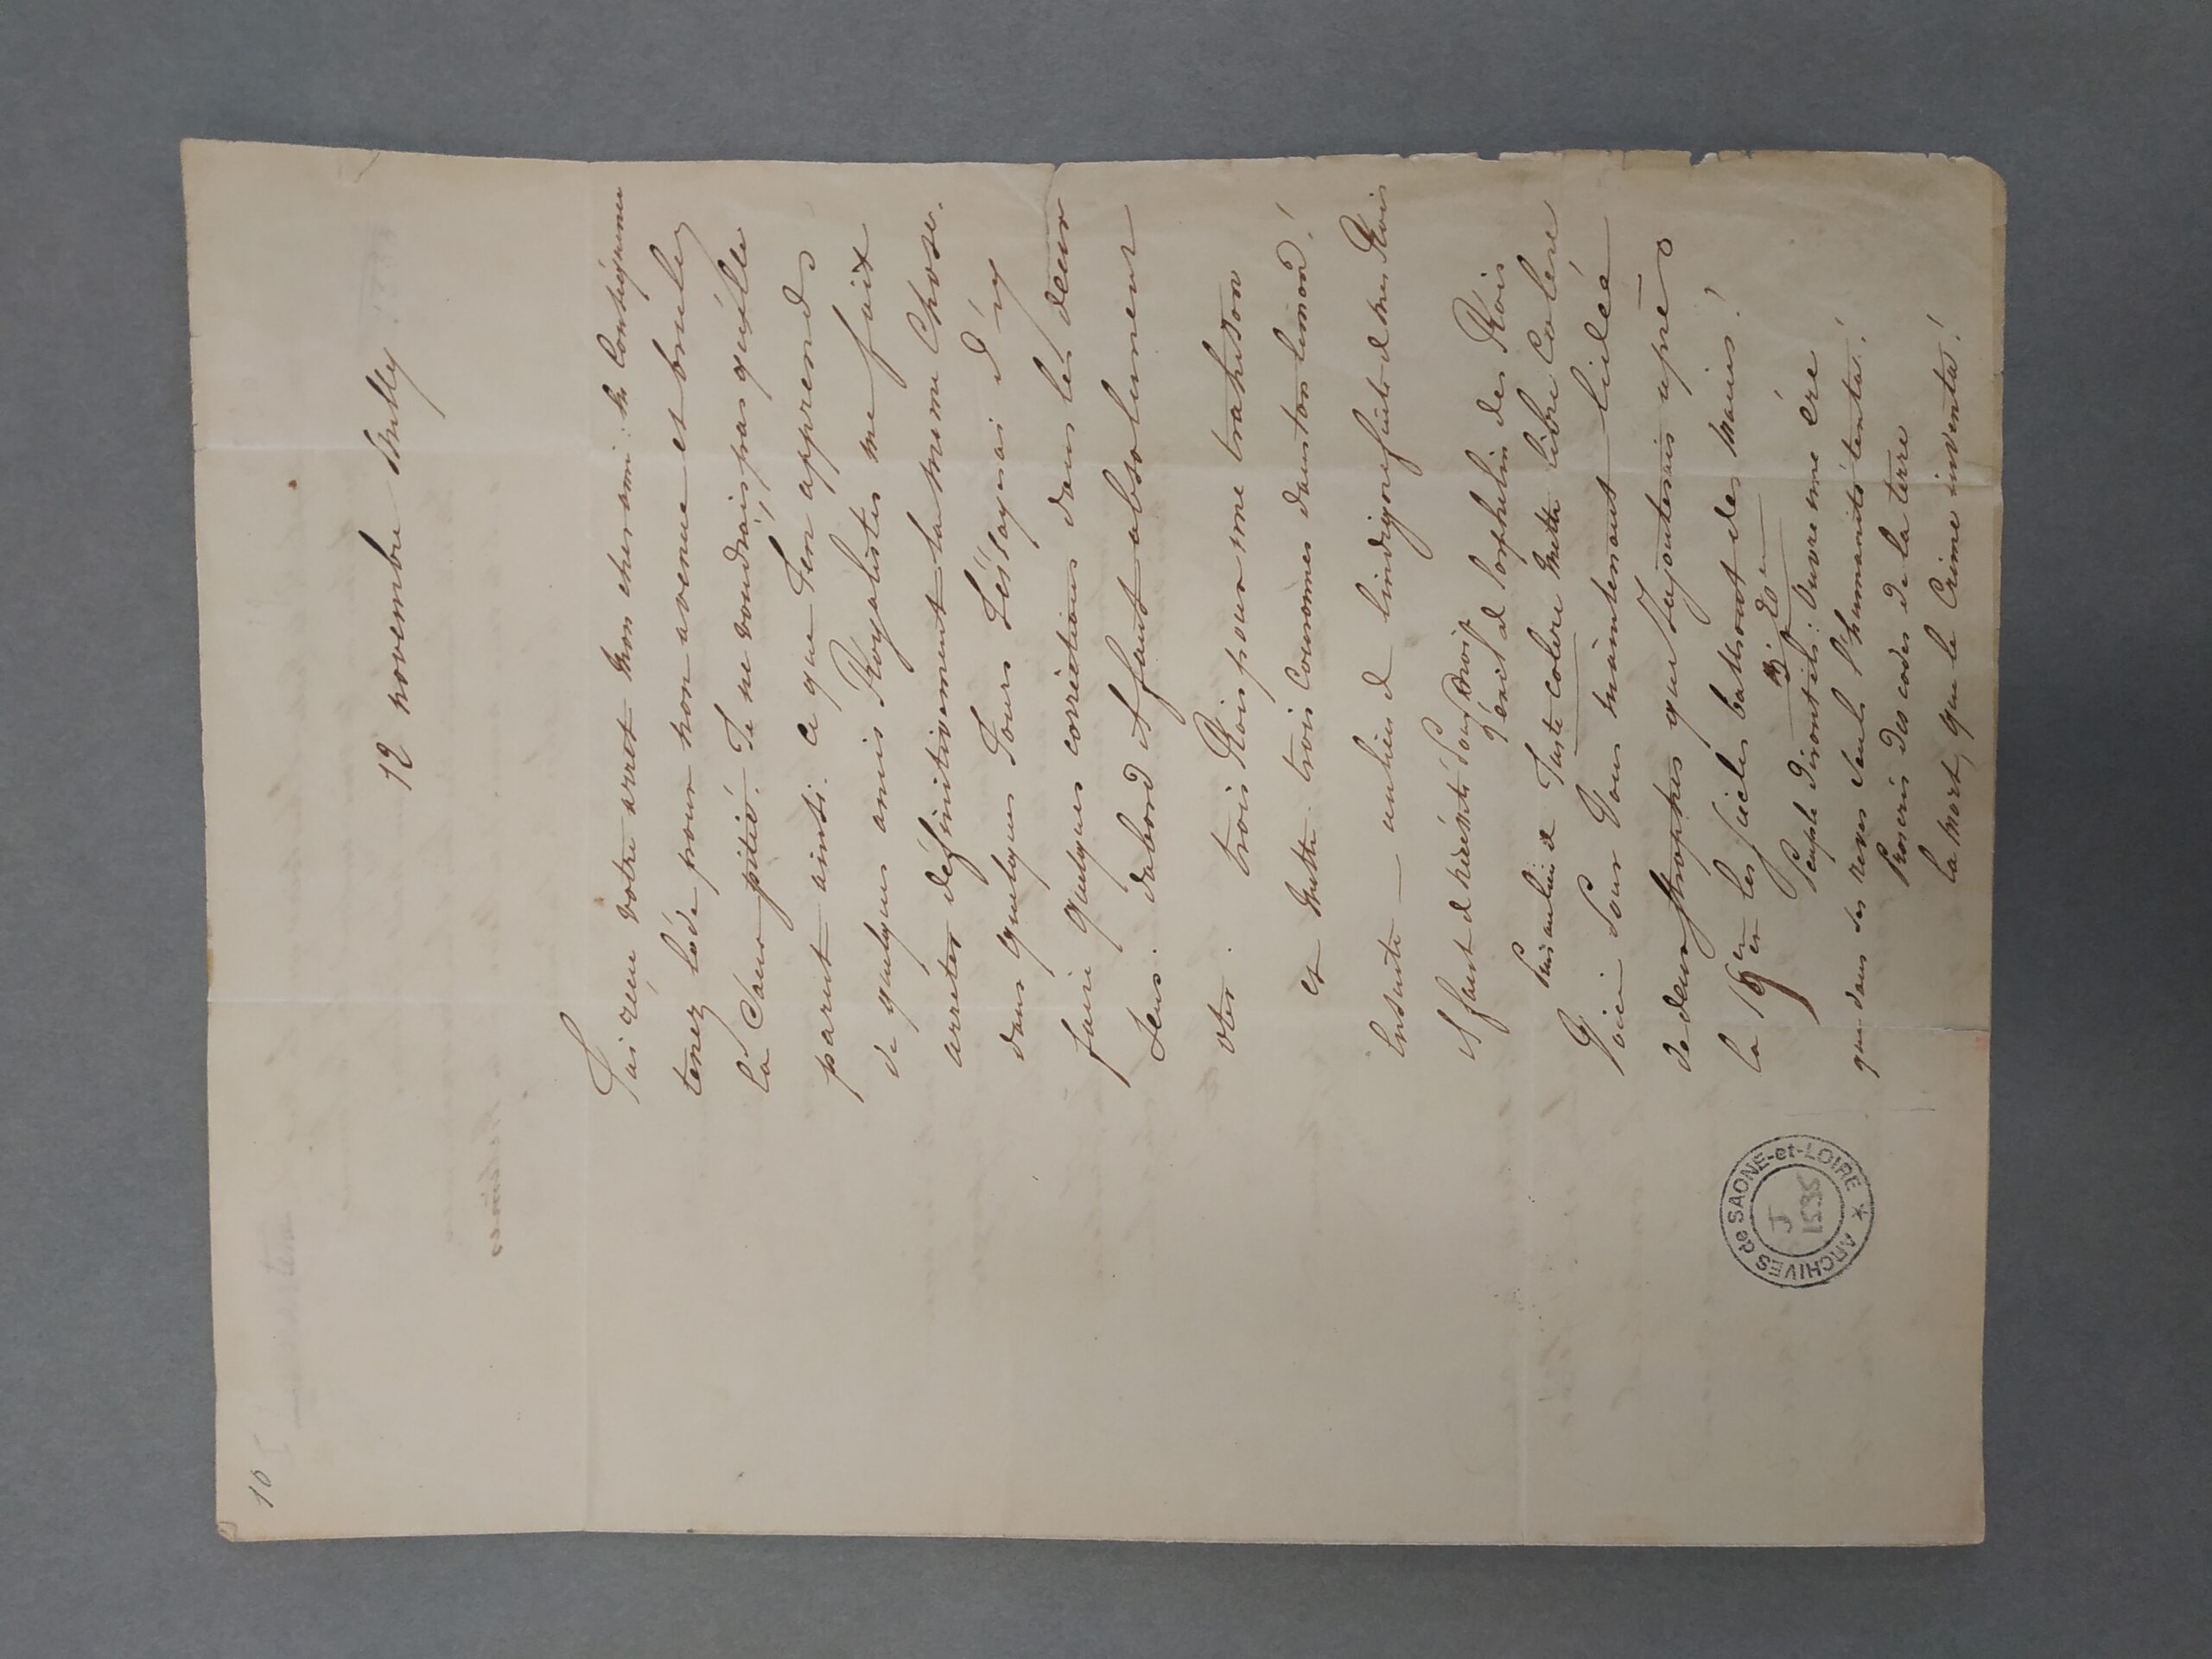 10
12 novembre Milly
J'ai reçu votre arret mon cher ami. En conséquence
tenez l'ode pour non avenue et brulez
la sans pitié. Je ne voudrais pas qu'elle
parut ainsi. Ce que j'en apprends
de quelques amis Royalistes me fait
arreter définitivement la meme chose.
dans quelques jours j'éssayerai d'y
faire quelques corrections dans les deux
sens. dabord il faut absolument
oter. trois Rois pour une trahison
et mettre. trois couronnes dans ton limon!
ensuite — au lieu d l'indigne fuite d tres Rois
il faut d
l'exil et l'orphelin des Rois
Puis au lieu d Juste colere mettre libre colere
Voici pour vous maintenant l'idée
de deux strophes que j'ajouterais après
la 19en les siècles battront des mains!
20en
Peuple diront ils: ouvre une ère
que dans ses reves seuls l'humanité tenta!
Proscris des codes de la terre
la mort, que le Crime inventa!
ARCHIVES de SAONE-et-LOIRE *
J
1535